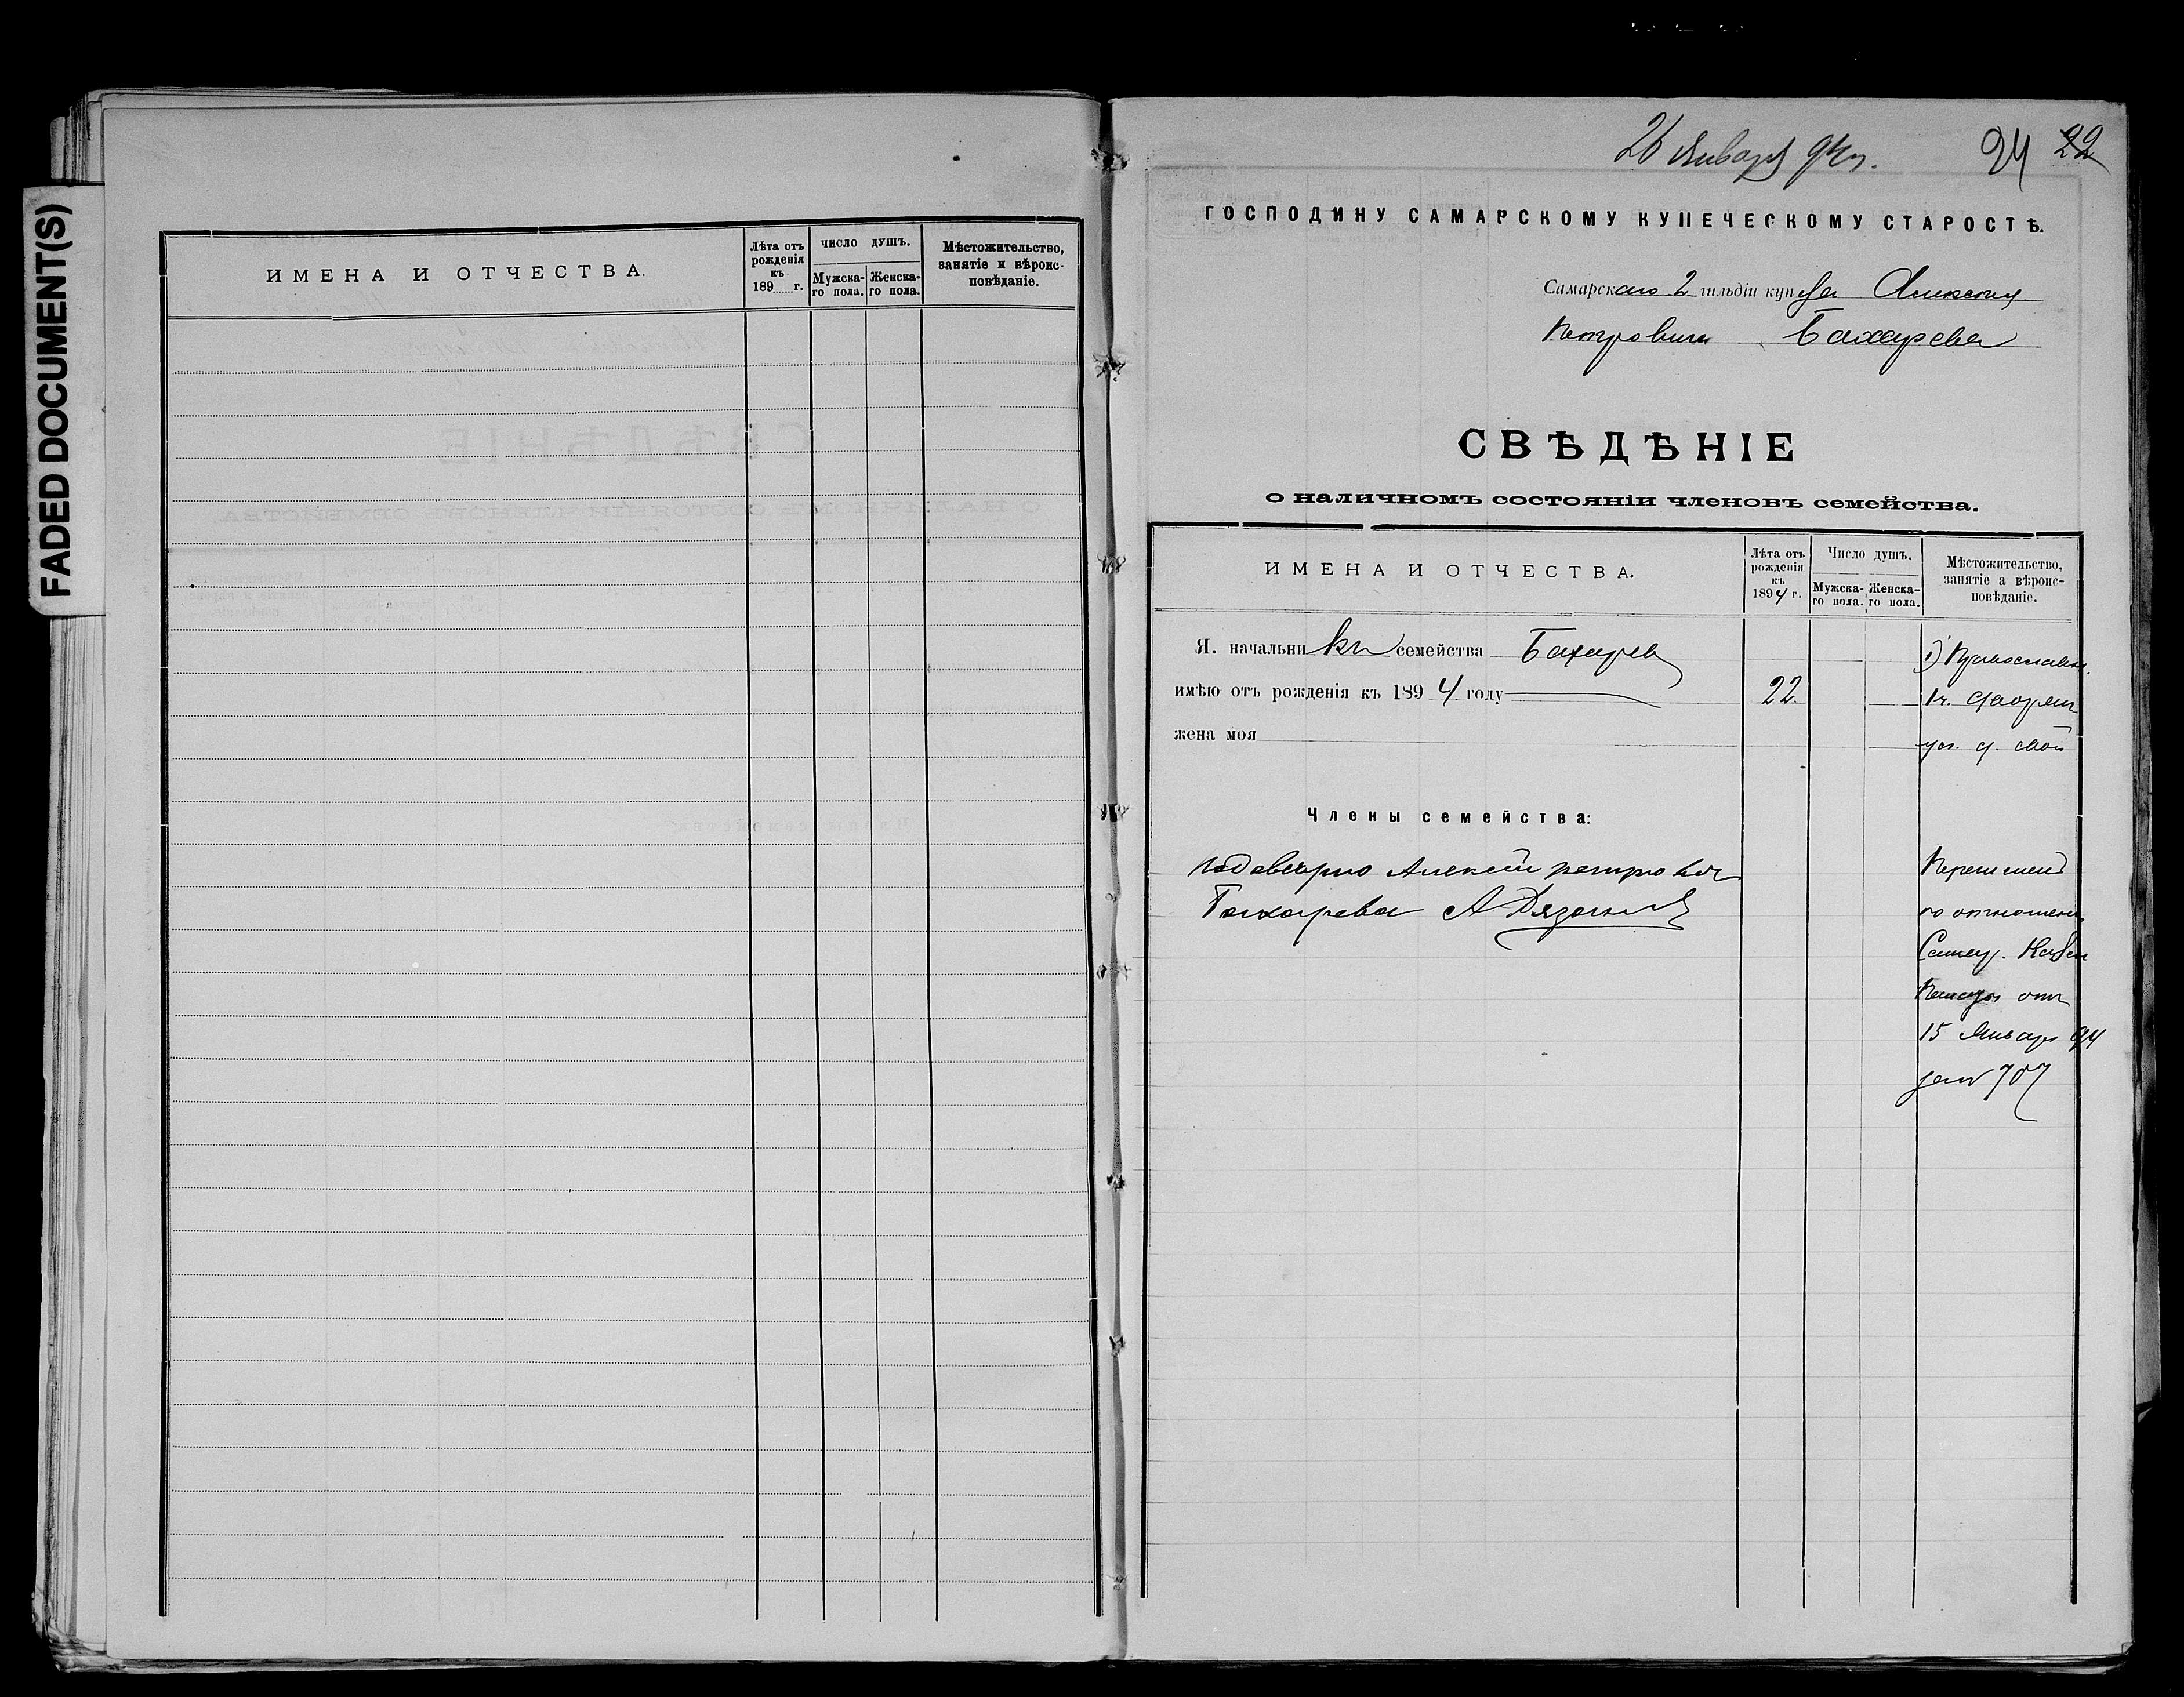 FADED DOCUMENT(S)
ИМЕНА И ОТЧЕСТВА.
Лѣта отъ рожденія къ 189 г.
ЧИСЛО ДУШЪ.
Мужска-го пола.
Женска-го пола.
Мѣстожительство, занятіе и вѣроис-повѣданіе.
26 Января 94 г. 24 22
ГОСПОДИНУ САМАРСКОМУ КУПЕЧЕСКОМУ СТАРОСТѢ.
Самарскаго 2 гильдіи купца Алексея
Петровича Бахарева
СВѢДѢНІЕ
о наличномъ состояніи членовъ семейства.
ИМЕНА И ОТЧЕСТВА.
Лѣта отъ рожденія къ 1894 г.
Число душъ.
Мужска-го пола.
Женска-го пола.
Мѣстожительство, занятіе а вѣроис-повѣданіе.
Я. начальникъ семейства Бахарев
1) Православн.
имѣю отъ рожденія къ 1894 году 22.
жена моя
Члены семейства:
по доверию Алексея
Бахарева А
по отношен.
Самар. Казен
Палаты отъ
15 Января 94
707